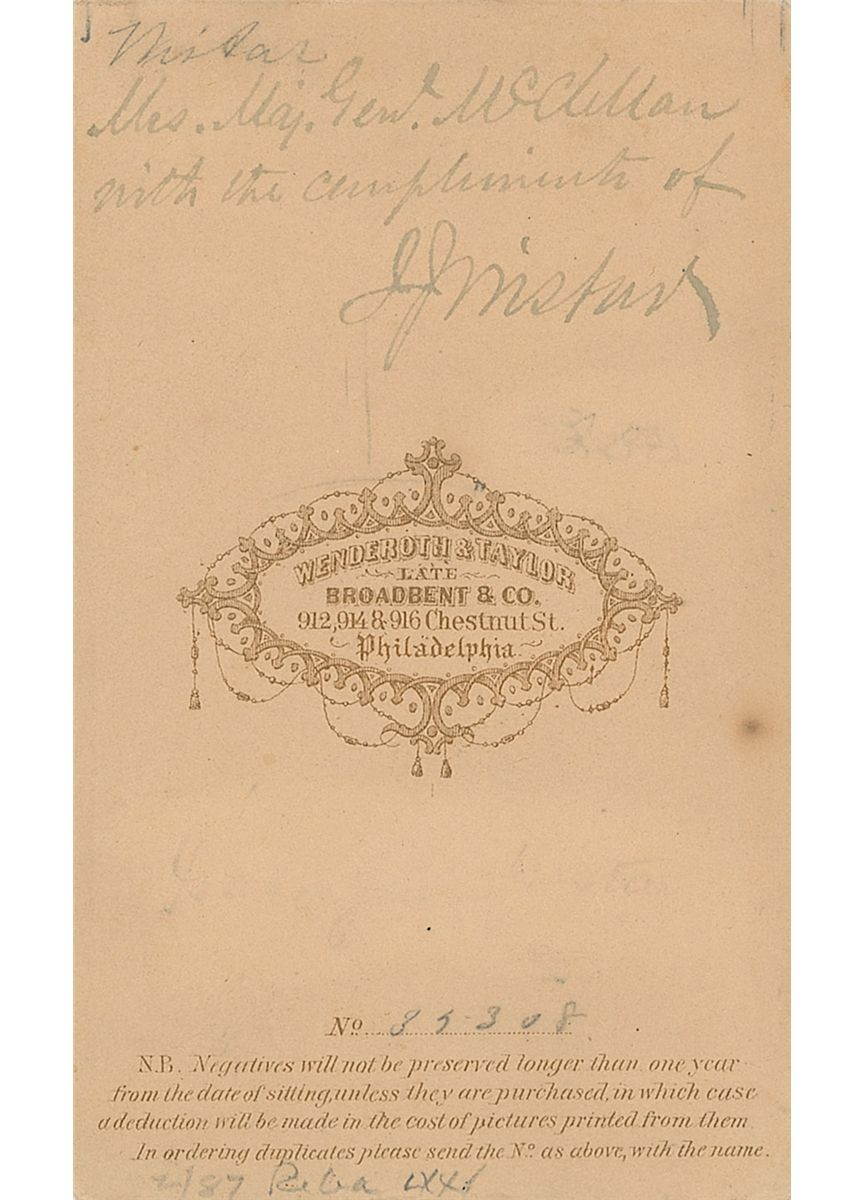 Wistar
Mrs. Maj. Genl. McClellan
with the compliments of
J J Wistar
WENDEROTH & TAYLOR
LATE
BROADBENT & CO.
912, 914 & 916 Chestnut St.
Philadelphia.
No. 35308
N.B. Negatives will not be preserved longer than one year
from the date of sitting, unless they are purchased, in which case
a deduction will be made in the cost of pictures printed from them.
In ordering duplicates please send the No. as above, with the name.
2/87